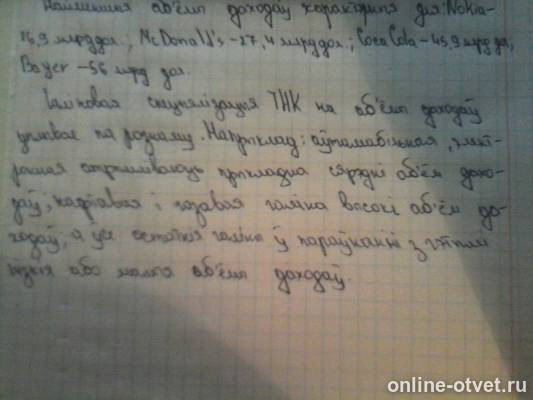 Найменшыя аб'ёмы даходаў характэрна для: Nokia-
16,9 млрд дол.; McDonald's - 27,4 млрд дол.; Coca Cola - 45,9 млрд дол,
Bayer - 56 млрд дол.
Галіновая спецыялізацыя ТНК на аб'ём даходаў
уплывае па рознаму. Напрыклад: аўтамабільная, элект-
ронная атрымліваюць прыкладна сярэдні аб'ём дахо-
даў, нафтавая і газавая галіна высокі аб'ём да-
ходаў, а усе астатнія галіны ў параўнанні з гэтымі
нізкія або малыя аб'ёмы даходаў.
online-otvet.ru